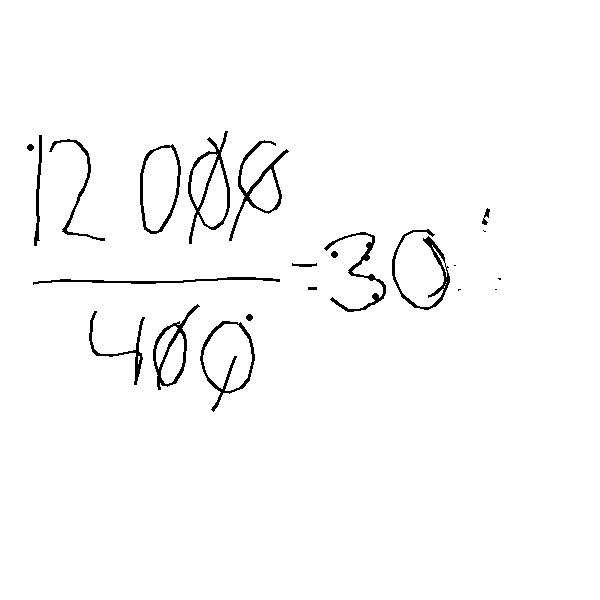 12 000
400
=30